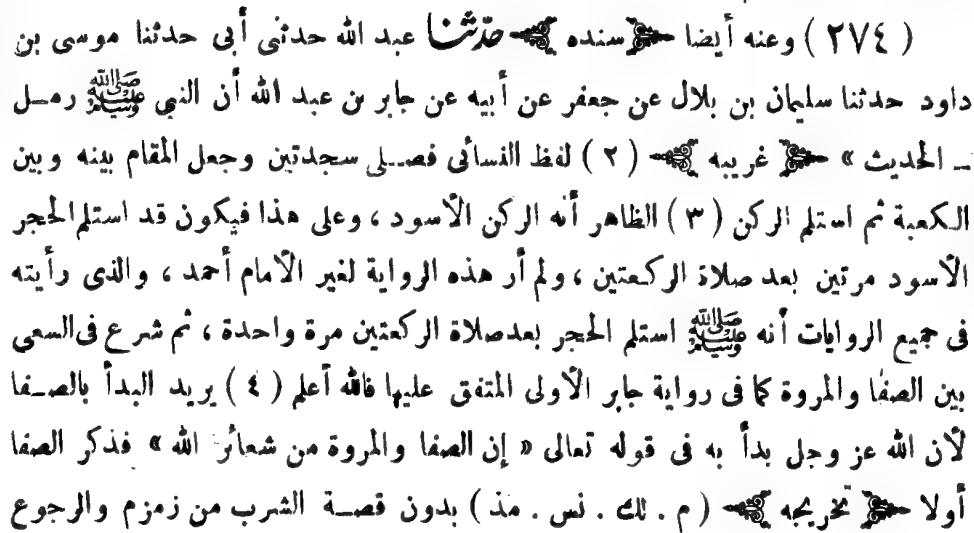 ( ٢٧٤ ) وعنه أيضا ﴿ سنده ﴾ حدّثنا عبد الله حدثنى أبى حدثنا موسى بن
داود حدثنا سليمان بن بلال عن جعفر عن أبيه عن جابر بن عبد الله أن النبي ﷺ رمــل
ـ الحديث » ﴿ غريبه ﴾ ( ٢ ) لفظ النسائى فصــلى سجدتين وجعل المقام بينه وبين
الكعبة ثم استلم الركن ( ٣ ) الظاهر أنه الركن الأسود ، وعلى هذا فيكون قد استلم الحجر
الأسود مرتين بعد صلاة الركعتين ، ولم أر هذه الرواية لغير الأمام أحمد ، والذى رأيته
فى جميع الروايات أنه ﷺ استلم الحجر بعد صلاة الركعتين مرة واحدة ، ثم شرع فى السعى
بين الصفا والمروة كما فى رواية جابر الأولى المتفق عليها فالله أعلم ( ٤ ) يريد البدأ بالصــفا
لأن الله عز وجل بدأ به فى قوله تعالى « إن الصفا والمروة من شعائر الله » فذكر الصفا
أولا ﴿ تخريجه ﴾ ( م . لك . نس . مذ ) بدون قصــة الشرب من زمزم والرجوع